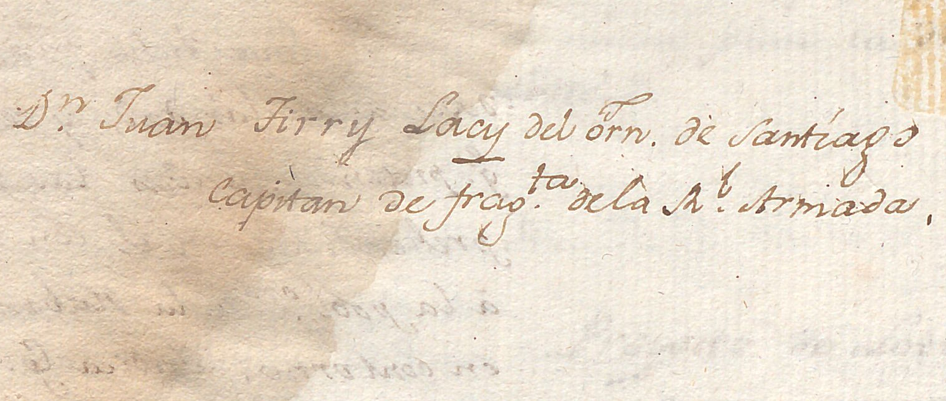 Dn. Juan Tirry Lacy del orn. de Santiago
Capitan de frag.ta de la Rl. Armada.